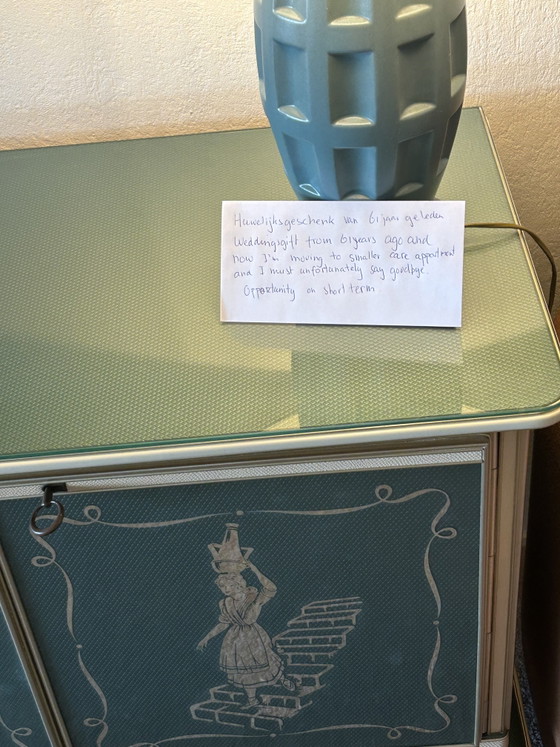 Huwelijksgeschenk van 61 jaar geleden
Weddingsgift from 61 years ago and
now I'm moving to smaller care appartment
and I must unfortunately say goodbye.
Opportunity on short term